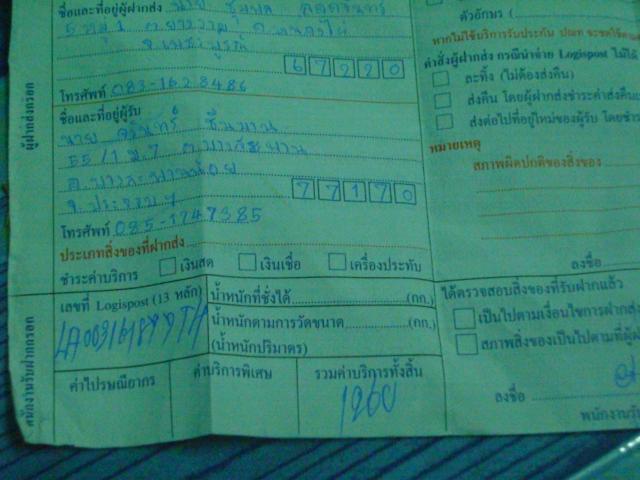 ชื่อและที่อยู่ผู้ฝากส่ง นาย
5 หมู่ 1 ต.ยางงาม อ.หนองไผ่
จ.เพชรบูรณ์
67220
โทรศัพท์ 083-1628486
ชื่อและที่อยู่ผู้รับ
นาย
55/1 ม.7 ต.บางสะพาน
อ.บางสะพานน้อย
จ.ประจวบฯ
77170
โทรศัพท์ 085-1247385
ประเภทสิ่งของที่ฝากส่ง
ชำระค่าบริการ เงินสด เงินเชื่อ เครื่องประทับ
เลขที่ Logispost (13 หลัก)
น้ำหนักที่ชั่งได้ (กก.)
น้ำหนักตามการวัดขนาด (กก.)
(น้ำหนักปริมาตร)
ค่าไปรษณียากร
ค่าบริการพิเศษ
รวมค่าบริการทั้งสิ้น
ผู้ฝากส่งกรอก
พนักงานรับฝากกรอก
ตัวอักษร (
หากไม่ใช้บริการรับประกัน ปณท จะชดใช้
คำสั่งผู้ฝากส่ง กรณีนำจ่าย Logispost ไม่ได้
ละทิ้ง (ไม่ต้องส่งคืน)
ส่งคืน โดยผู้ฝากส่งชำระค่าส่งคืน
ส่งต่อไปที่อยู่ใหม่ของผู้รับ โดยชำระ
หมายเหตุ
สภาพผิดปกติของสิ่งของ
ลงชื่อ
ได้ตรวจสอบสิ่งของที่รับฝากแล้ว
เป็นไปตามเงื่อนไขการฝากส่ง
สภาพสิ่งของเป็นไปตามที่ผู้
ลงชื่อ
พนักงานรับ